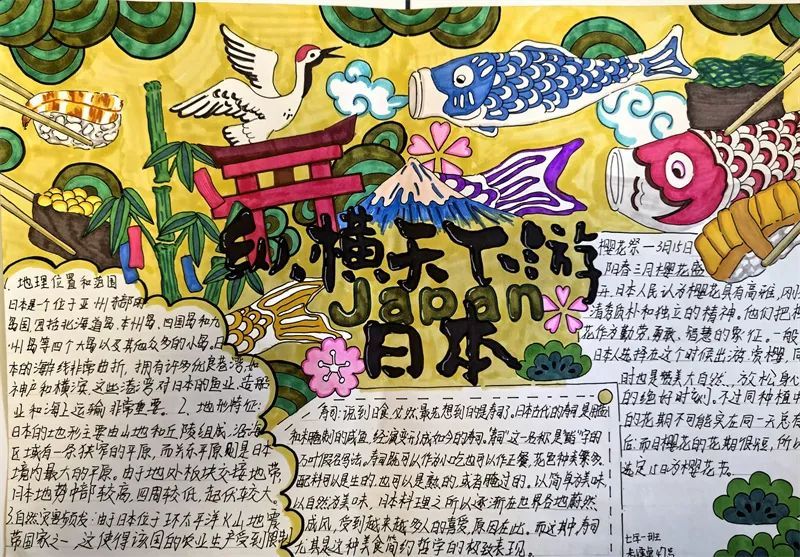 纵横天下游
Japan
日本
1. 地理位置和范围
日本是一个位于亚州东部的
岛国,包括北海道岛、本州岛、四国岛和九
州岛等四个大岛以及其他众多的小岛。日
本的海岸线非常曲折,拥有许多优良港湾,如
神户和横滨,这些港湾对日本的渔业、造船
业和海上运输非常重要。2、地形特征:
日本的地形主要由山地和丘陵组成,沿海
区域有一条狭窄的平原,而关东平原则是日本
境内最大的平原。由于地处板块交接地带,
日本地势中部较高,四周较低,起伏较大。
3.自然灾害频发:由于日本位于环太平洋火山地震
带国家之一,这使得该国的农业生产受到限制
寿司:说到日食,必然最先想到的是寿司。日本古代的寿司是用
和米腌制的咸鱼,经演变形成如今的寿司。"寿司"这一名称是"鮨"字的
万叶假名写法。寿司既可以作为小吃也可以作正餐,花色种类繁多。
配料可以是生的,也可以是熟的,或者腌过的。以简单为味,
以自然为美味,日本料理之所以逐渐在世界各地蔚然
成风,受到越来越多人的喜爱,原因在此。而这其中,寿司
尤其是这种美食简约哲学的极致表现。
樱花祭—3月15日
阳春三月樱花盛
日本人民认为樱花具有高雅,刚
清秀质朴和独立的精神。他们把樱
花作为勤劳、勇敢、智慧的象征。一般
日本人选择在这个时候出游,赏樱,同
时也是赞美大自然、放松身心
的绝好时刻。不过同种植
的花期不可能实在同一天总
后;而日樱花的花期很短,所以
选定15日为樱花节。
七年一班